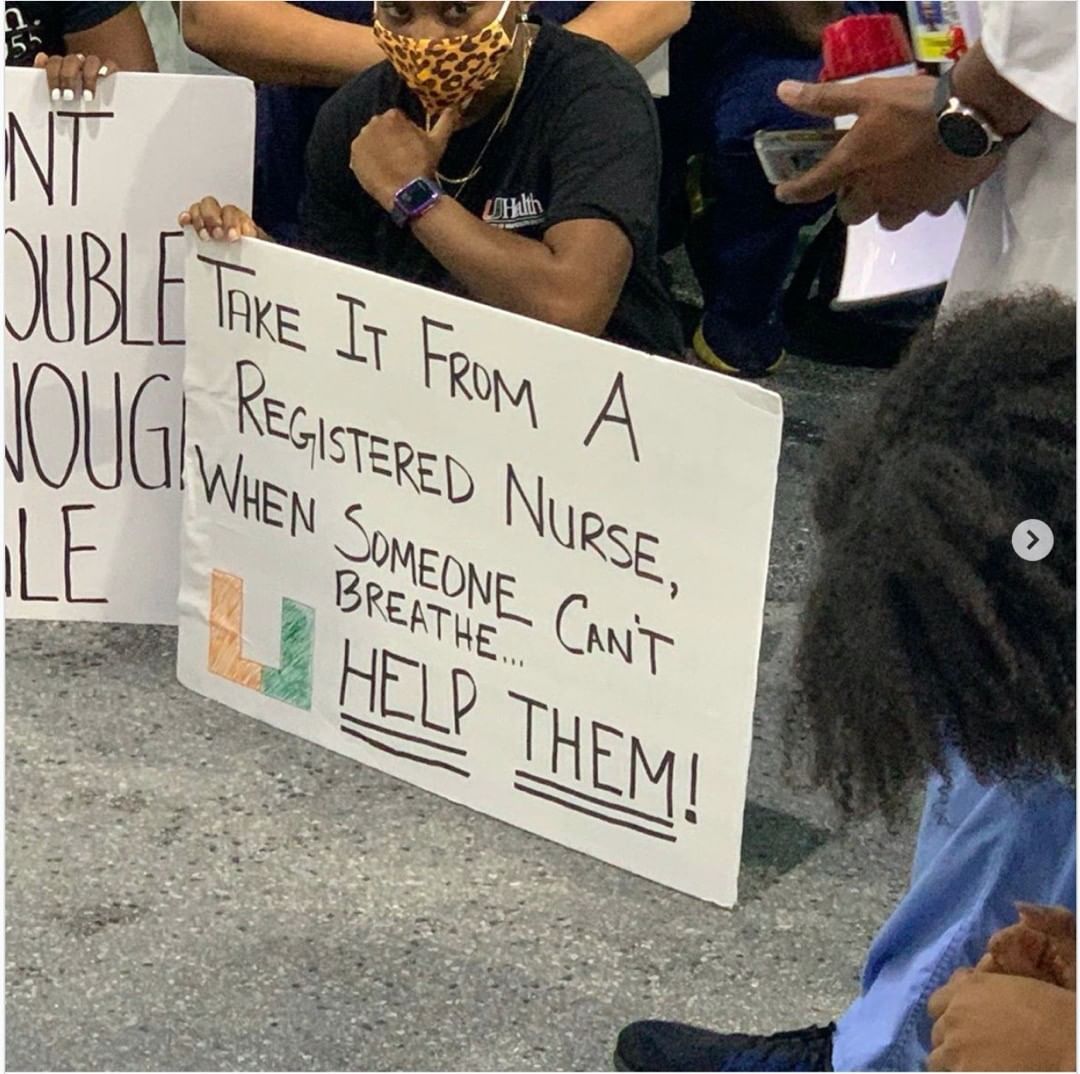 NT
OUBLE
NOUG
LE
UHealth
TAKE IT FROM A
REGISTERED NURSE,
WHEN SOMEONE CAN'T
BREATHE...
U HELP THEM!